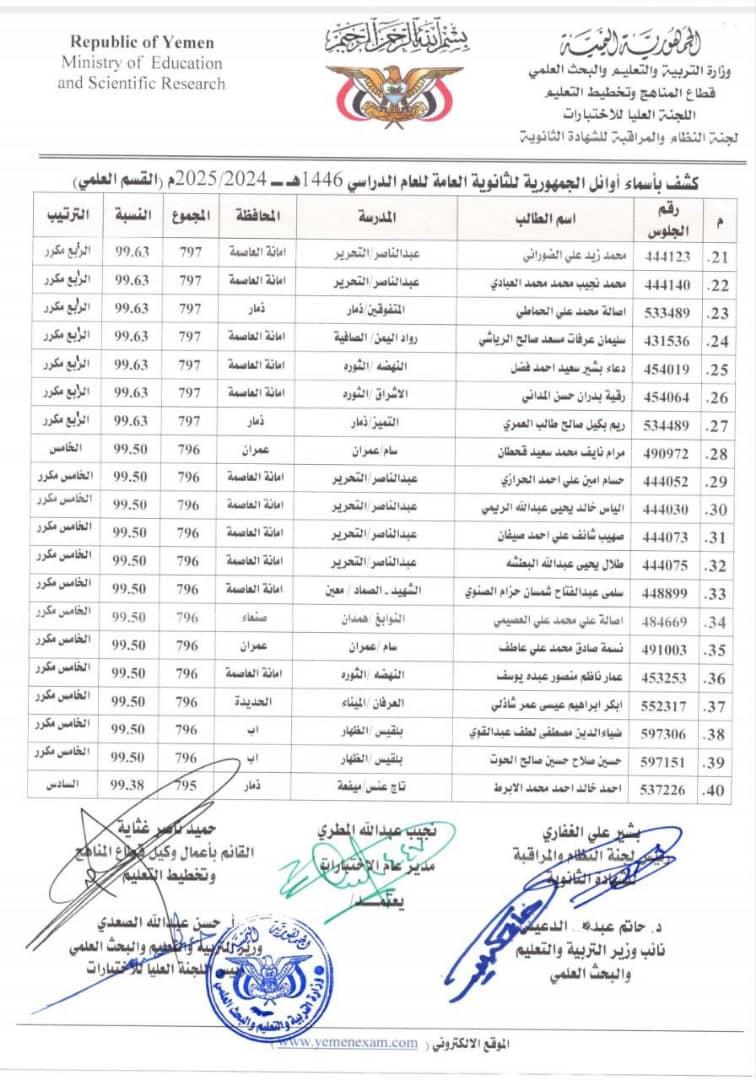 Republic of Yemen
Ministry of Education
and Scientific Research
بسم الله الرحمن الرحيم
الجمهورية اليمنية
وزارة التربية والتعليم والبحث العلمي
قطاع المناهج وتخطيط التعليم
اللجنة العليا للاختبارات
لجنة النظام والمراقبة للشهادة الثانوية
كشف بأسماء أوائل الجمهورية للثانوية العامة للعام الدراسي 1446هـ ــ 2025/2024م (القسم العلمي)
م رقم الجلوس اسم الطالب المدرسة المحافظة المجموع النسبة الترتيب
21. 444123 محمد زيد علي الضوراني عبدالناصر/التحرير امانة العاصمة 797 99.63 الرابع مكرر
22. 444140 محمد نجيب محمد محمد العبادي عبدالناصر/التحرير امانة العاصمة 797 99.63 الرابع مكرر
23. 533489 اصالة محمد علي الحماطي المتفوقين/ذمار ذمار 797 99.63 الرابع مكرر
24. 431536 سليمان عرفات مسعد صالح الرياشي رواد اليمن/ الصافية امانة العاصمة 797 99.63 الرابع مكرر
25. 454019 دعاء بشير سعيد احمد فضل النهضه /الثوره امانة العاصمة 797 99.63 الرابع مكرر
26. 454064 رقية بدران حسن المداني الاشراق/ الثوره امانة العاصمة 797 99.63 الرابع مكرر
27. 534489 ريم بكيل صالح طالب العمري التميز/ذمار ذمار 797 99.63 الرابع مكرر
28. 490972 مرام نايف محمد سعيد قحطان سام/عمران عمران 796 99.50 الخامس
29. 444052 حسام امين علي احمد الحرازي عبدالناصر/التحرير امانة العاصمة 796 99.50 الخامس مكرر
30. 444030 الياس خالد يحيى عبدالله الريمي عبدالناصر/التحرير امانة العاصمة 796 99.50 الخامس مكرر
31. 444073 صهيب شائف علي احمد صيفان عبدالناصر/التحرير امانة العاصمة 796 99.50 الخامس مكرر
32. 444075 طلال يحيى عبدالله البطشه عبدالناصر/التحرير امانة العاصمة 796 99.50 الخامس مكرر
33. 448899 سلمى عبدالفتاح شمسان حزام الصنوي الشهيد ـ الصماد / معين امانة العاصمة 796 99.50 الخامس مكرر
34. 484669 اصالة علي محمد علي العصيمي النوابغ/همدان صنعاء 796 99.50 الخامس مكرر
35. 491003 نسمة صادق محمد علي عاطف سام/عمران عمران 796 99.50 الخامس مكرر
36. 453253 عمار ناظم منصور عبده يوسف النهضه /الثوره امانة العاصمة 796 99.50 الخامس مكرر
37. 552317 ابكر ابراهيم عيسى عمر شاذلي العرفان/الميناء الحديدة 796 99.50 الخامس مكرر
38. 597306 ضياءالدين مصطفى لطف عبدالقوي بلقيس/الظهار اب 796 99.50 الخامس مكرر
39. 597151 حسين صلاح حسين صالح الحوت بلقيس/الظهار اب 796 99.50 الخامس مكرر
40. 537226 احمد خالد احمد محمد الابرط تاج عنس/ميفعة ذمار 795 99.38 السادس
بشير علي الغفاري نجيب عبدالله المطري حميد ناصر غثاية
رئيس لجنة النظام والمراقبة مدير عام الاختبارات القائم بأعمال وكيل قطاع المناهج
للشهادة الثانوية وتخطيط التعليم
يعتمد/
د. حاتم الدعيس أ. حسن عبدالله الصعدي
نائب وزير التربية والتعليم وزير التربية والتعليم والبحث العلمي
والبحث العلمي رئيس اللجنة العليا للاختبارات
الجمهورية اليمنية
وزارة التربية والتعليم والبحث العلمي
الموقع الالكتروني ( www.yemenexam.com )